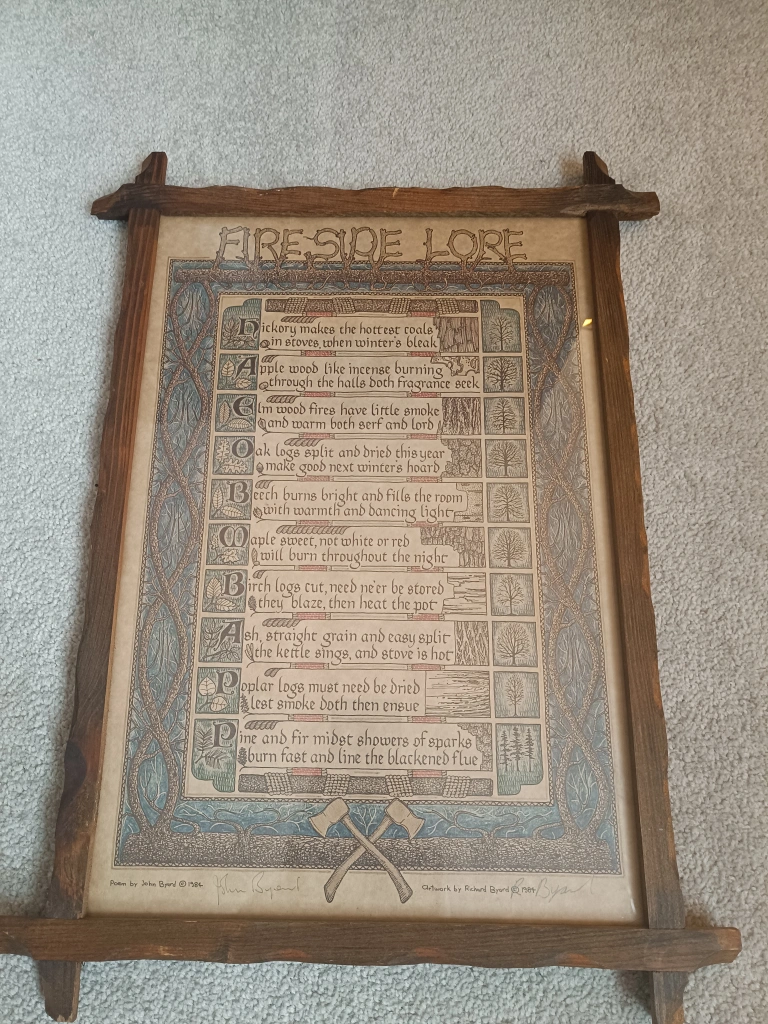 FIRESIDE LORE
Hickory makes the hottest coals
in stoves, when winter's bleak
Apple wood like incense burning
through the halls doth fragrance seek
Elm wood fires have little smoke
and warm both serf and lord
Oak logs split and dried this year
make good next winter's hoard
Beech burns bright and fills the room
with warmth and dancing light
Maple sweet, not white or red
will burn throughout the night
Birch logs cut, need ne'er be stored
they blaze, then heat the pot
Ash, straight grain and easy split
the kettle sings, and stove is hot
Poplar logs must need be dried
lest smoke doth then ensue
Pine and fir midst showers of sparks
burn fast and line the blackened flue
Poem by John Byard © 1984 John Byard
Artwork by Richard Byard © 1984